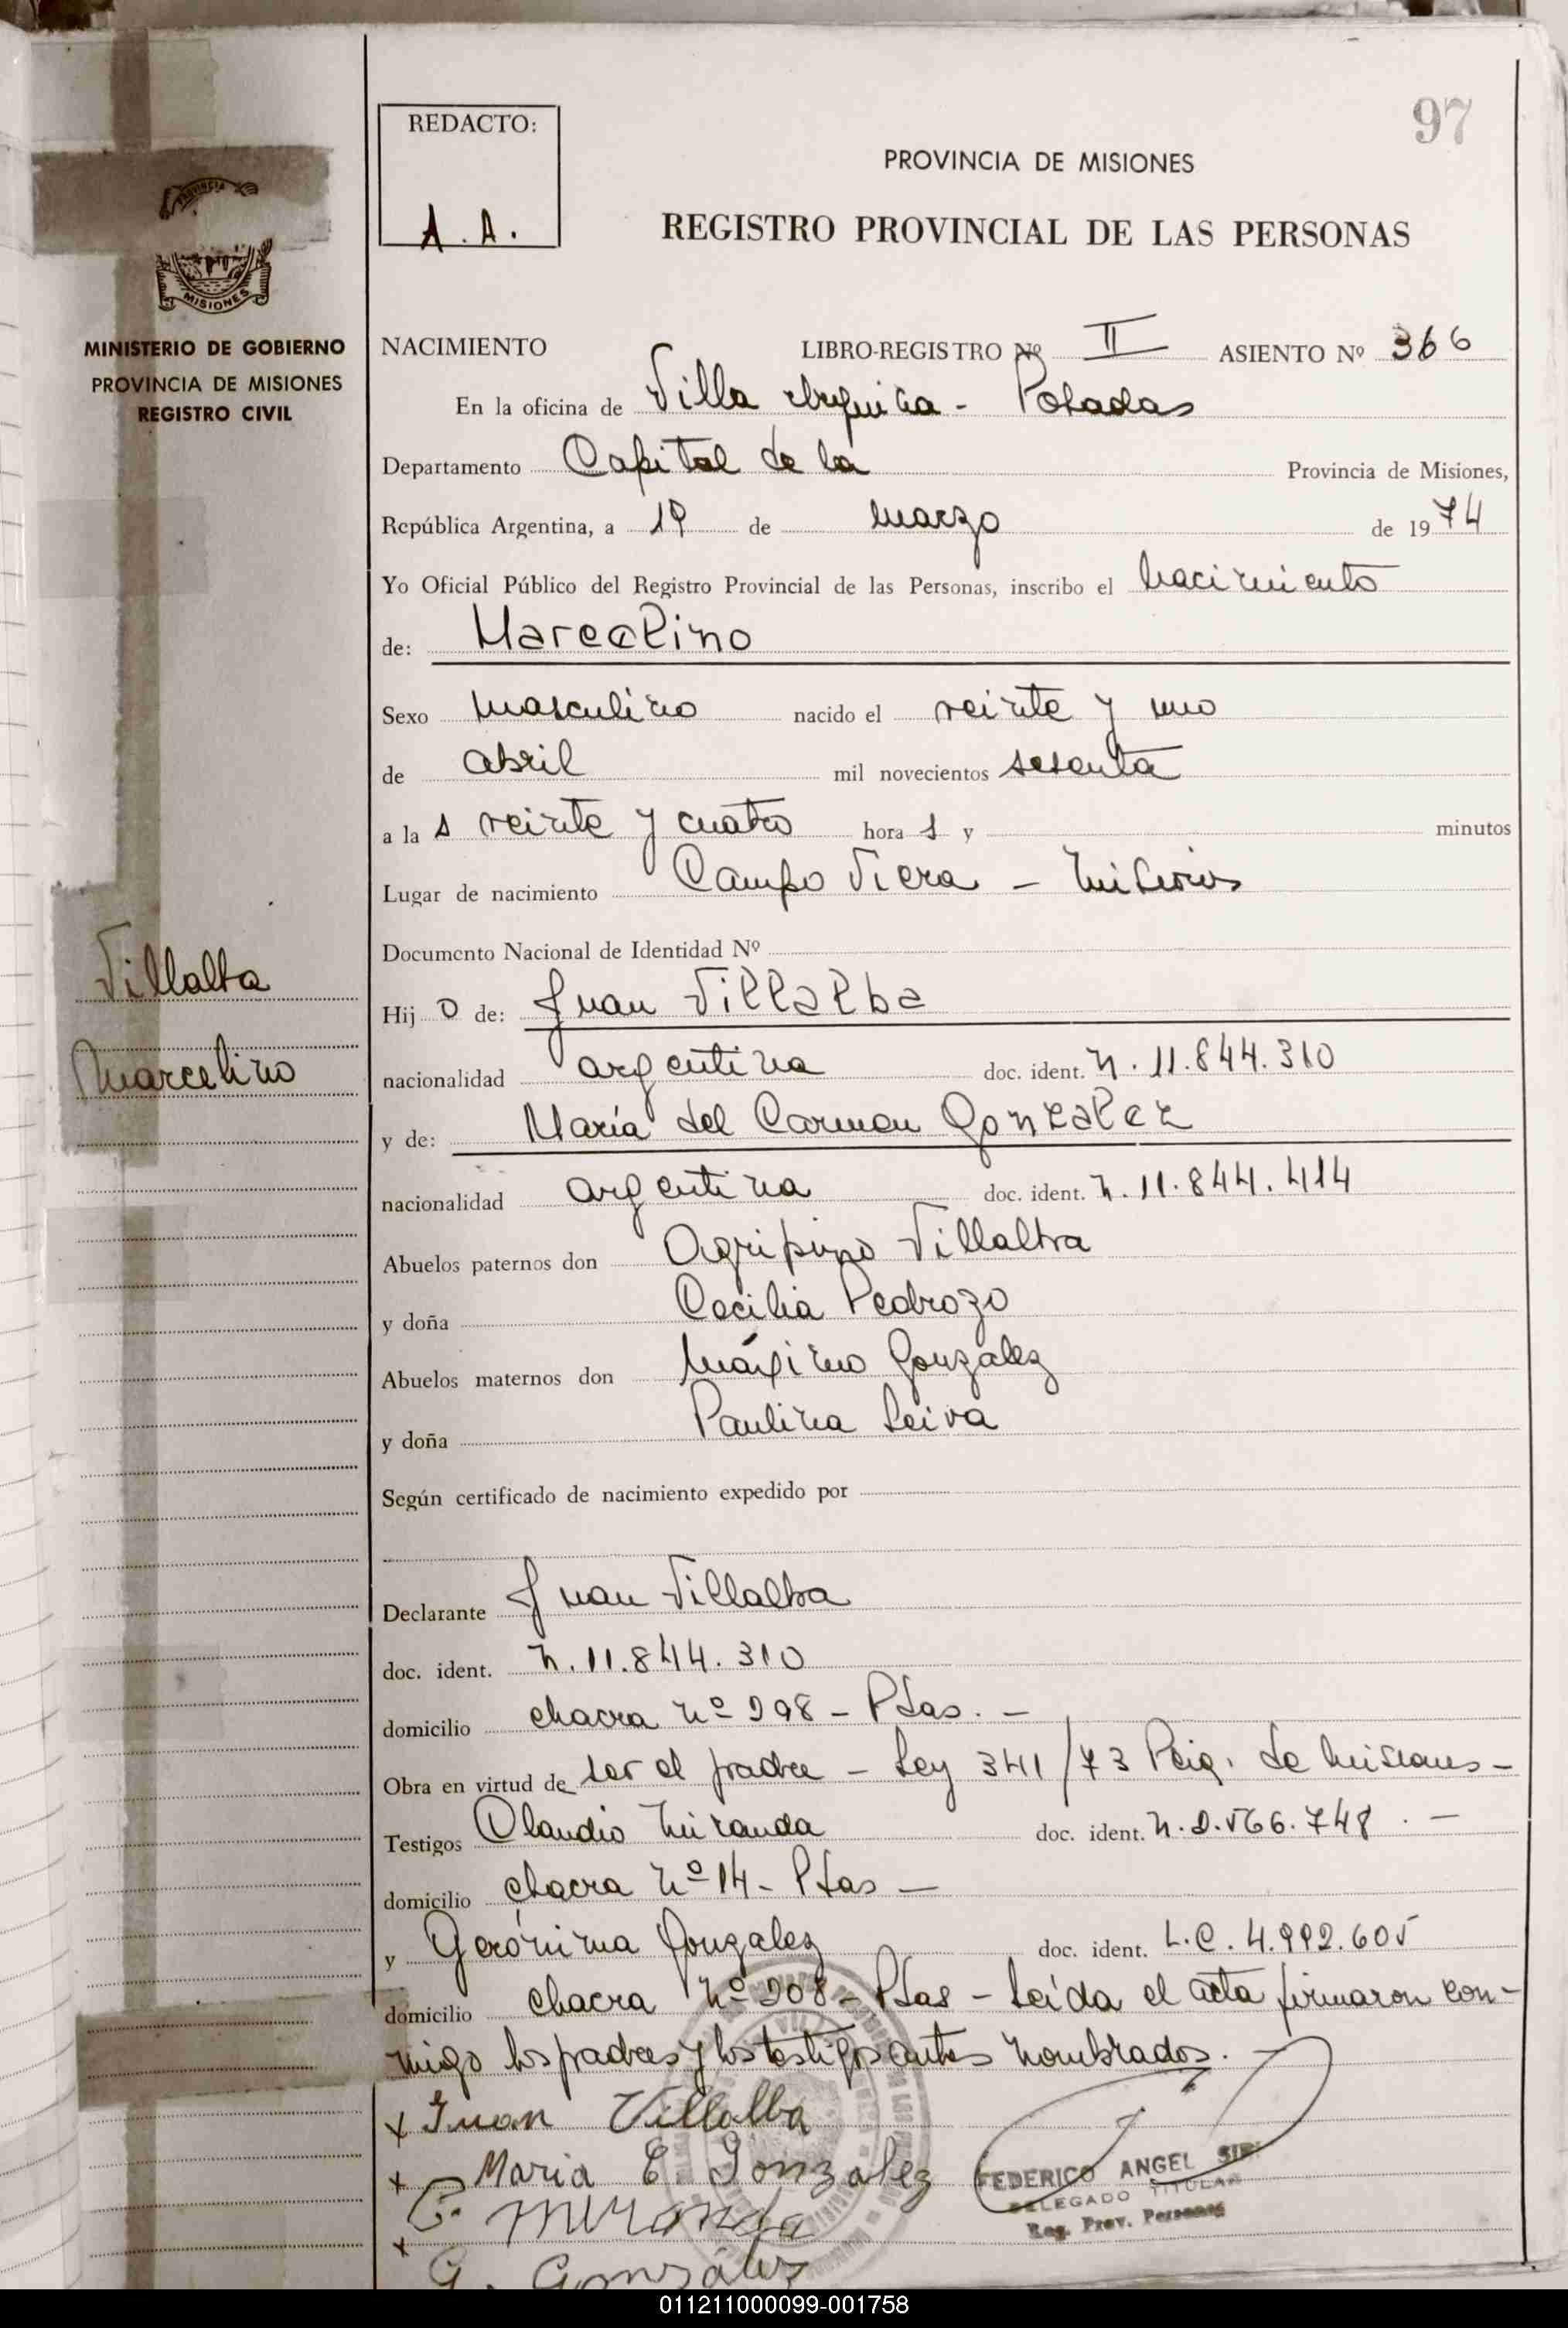 97
REDACTO:
A. A.
PROVINCIA DE MISIONES
REGISTRO PROVINCIAL DE LAS PERSONAS
PROVINCIA
MISIONES
MINISTERIO DE GOBIERNO
PROVINCIA DE MISIONES
REGISTRO CIVIL
NACIMIENTO LIBRO-REGISTRO Nº II ASIENTO Nº 366
En la oficina de Villa Urquiza - Posadas
Departamento Capital de la Provincia de Misiones,
República Argentina, a 19 de marzo de 1974
Yo Oficial Público del Registro Provincial de las Personas, inscribo el nacimiento
de: Marcelino
Sexo masculino nacido el veinte y uno
de abril mil novecientos sesenta
a las veinte y cuatro horas y minutos
Lugar de nacimiento Campo Viera - Misiones
Documento Nacional de Identidad Nº
Villalba
Marcelino
Hijo de: Juan Villalba
nacionalidad argentina doc. ident. N. 11.844.310
y de: María del Carmen Gonzalez
nacionalidad argentina doc. ident. N. 11.844.414
Abuelos paternos don Agripino Villalba
y doña Cecilia Pedrozo
Abuelos maternos don Máximo Gonzalez
y doña Paulina Leiva
Según certificado de nacimiento expedido por
Declarante Juan Villalba
doc. ident. N. 11.844.310
domicilio chacra Nº 298 - Pdas. -
Obra en virtud de ser el padre - Ley 341/73 de Misiones -
Testigos Claudio Miranda doc. ident. N. 2.566.748. -
domicilio chacra Nº 14 - Pdas -
y Gerónima Gonzalez doc. ident. L.C. 4.992.605
domicilio chacra Nº 208 - Pdas - Leída el acta firmaron con-
migo los padres y los testigos antes nombrados. -
x Juan Villalba
x Maria C. Gonzalez
C. Miranda
x
G. González
FEDERICO ANGEL
DELEGADO TITULAR
Reg. Prov. Personas
011211000099-001758